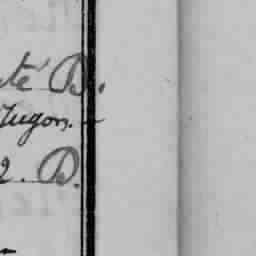 té B.
Hugon. -
2. B.